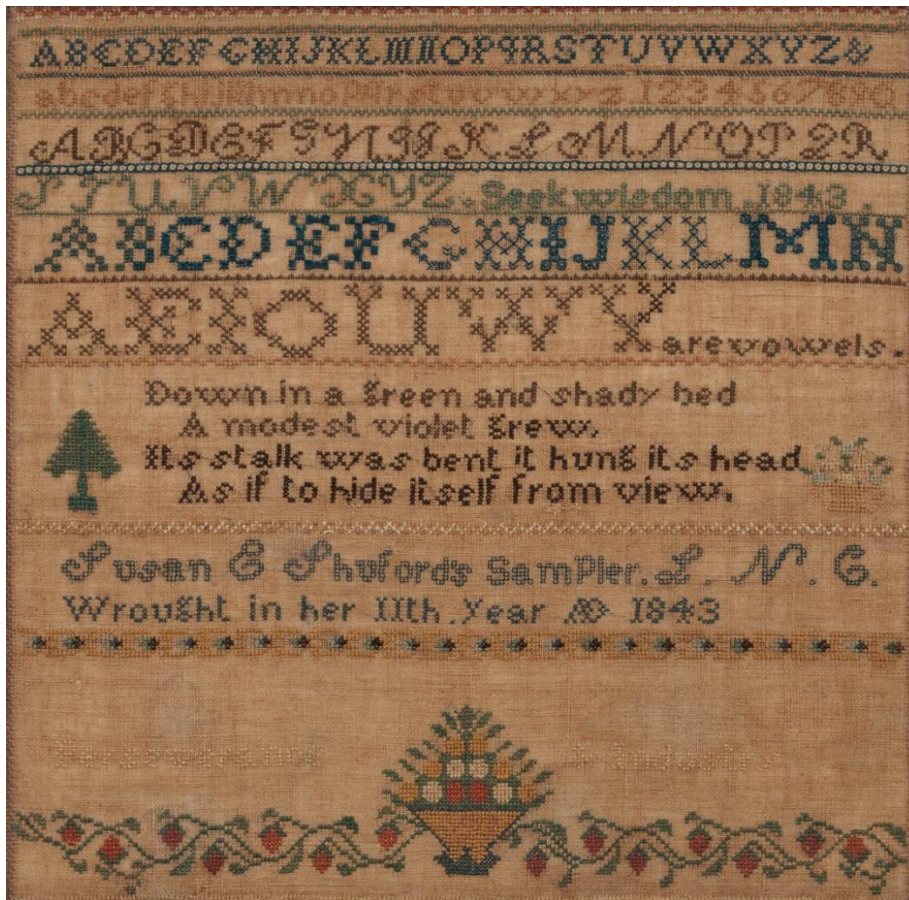 ABCDEF GHIJKLMNOPQRSTUVWXYZ&
abcdefghijklmnopqrstuvwxyz 1234567890
ABCDEFGHIJKLMNOPQR
STUVWXYZ. Seek wisdom. 1843.
ABCDEFGHIJKLMN
AEIOUWY are vowels.
Down in a green and shady bed
A modest violet grew,
Its stalk was bent it hung its head
As if to hide itself from view.
Susan E Shuford's Sampler. L. N. C.
Wrought in her 11th. Year AD 1843